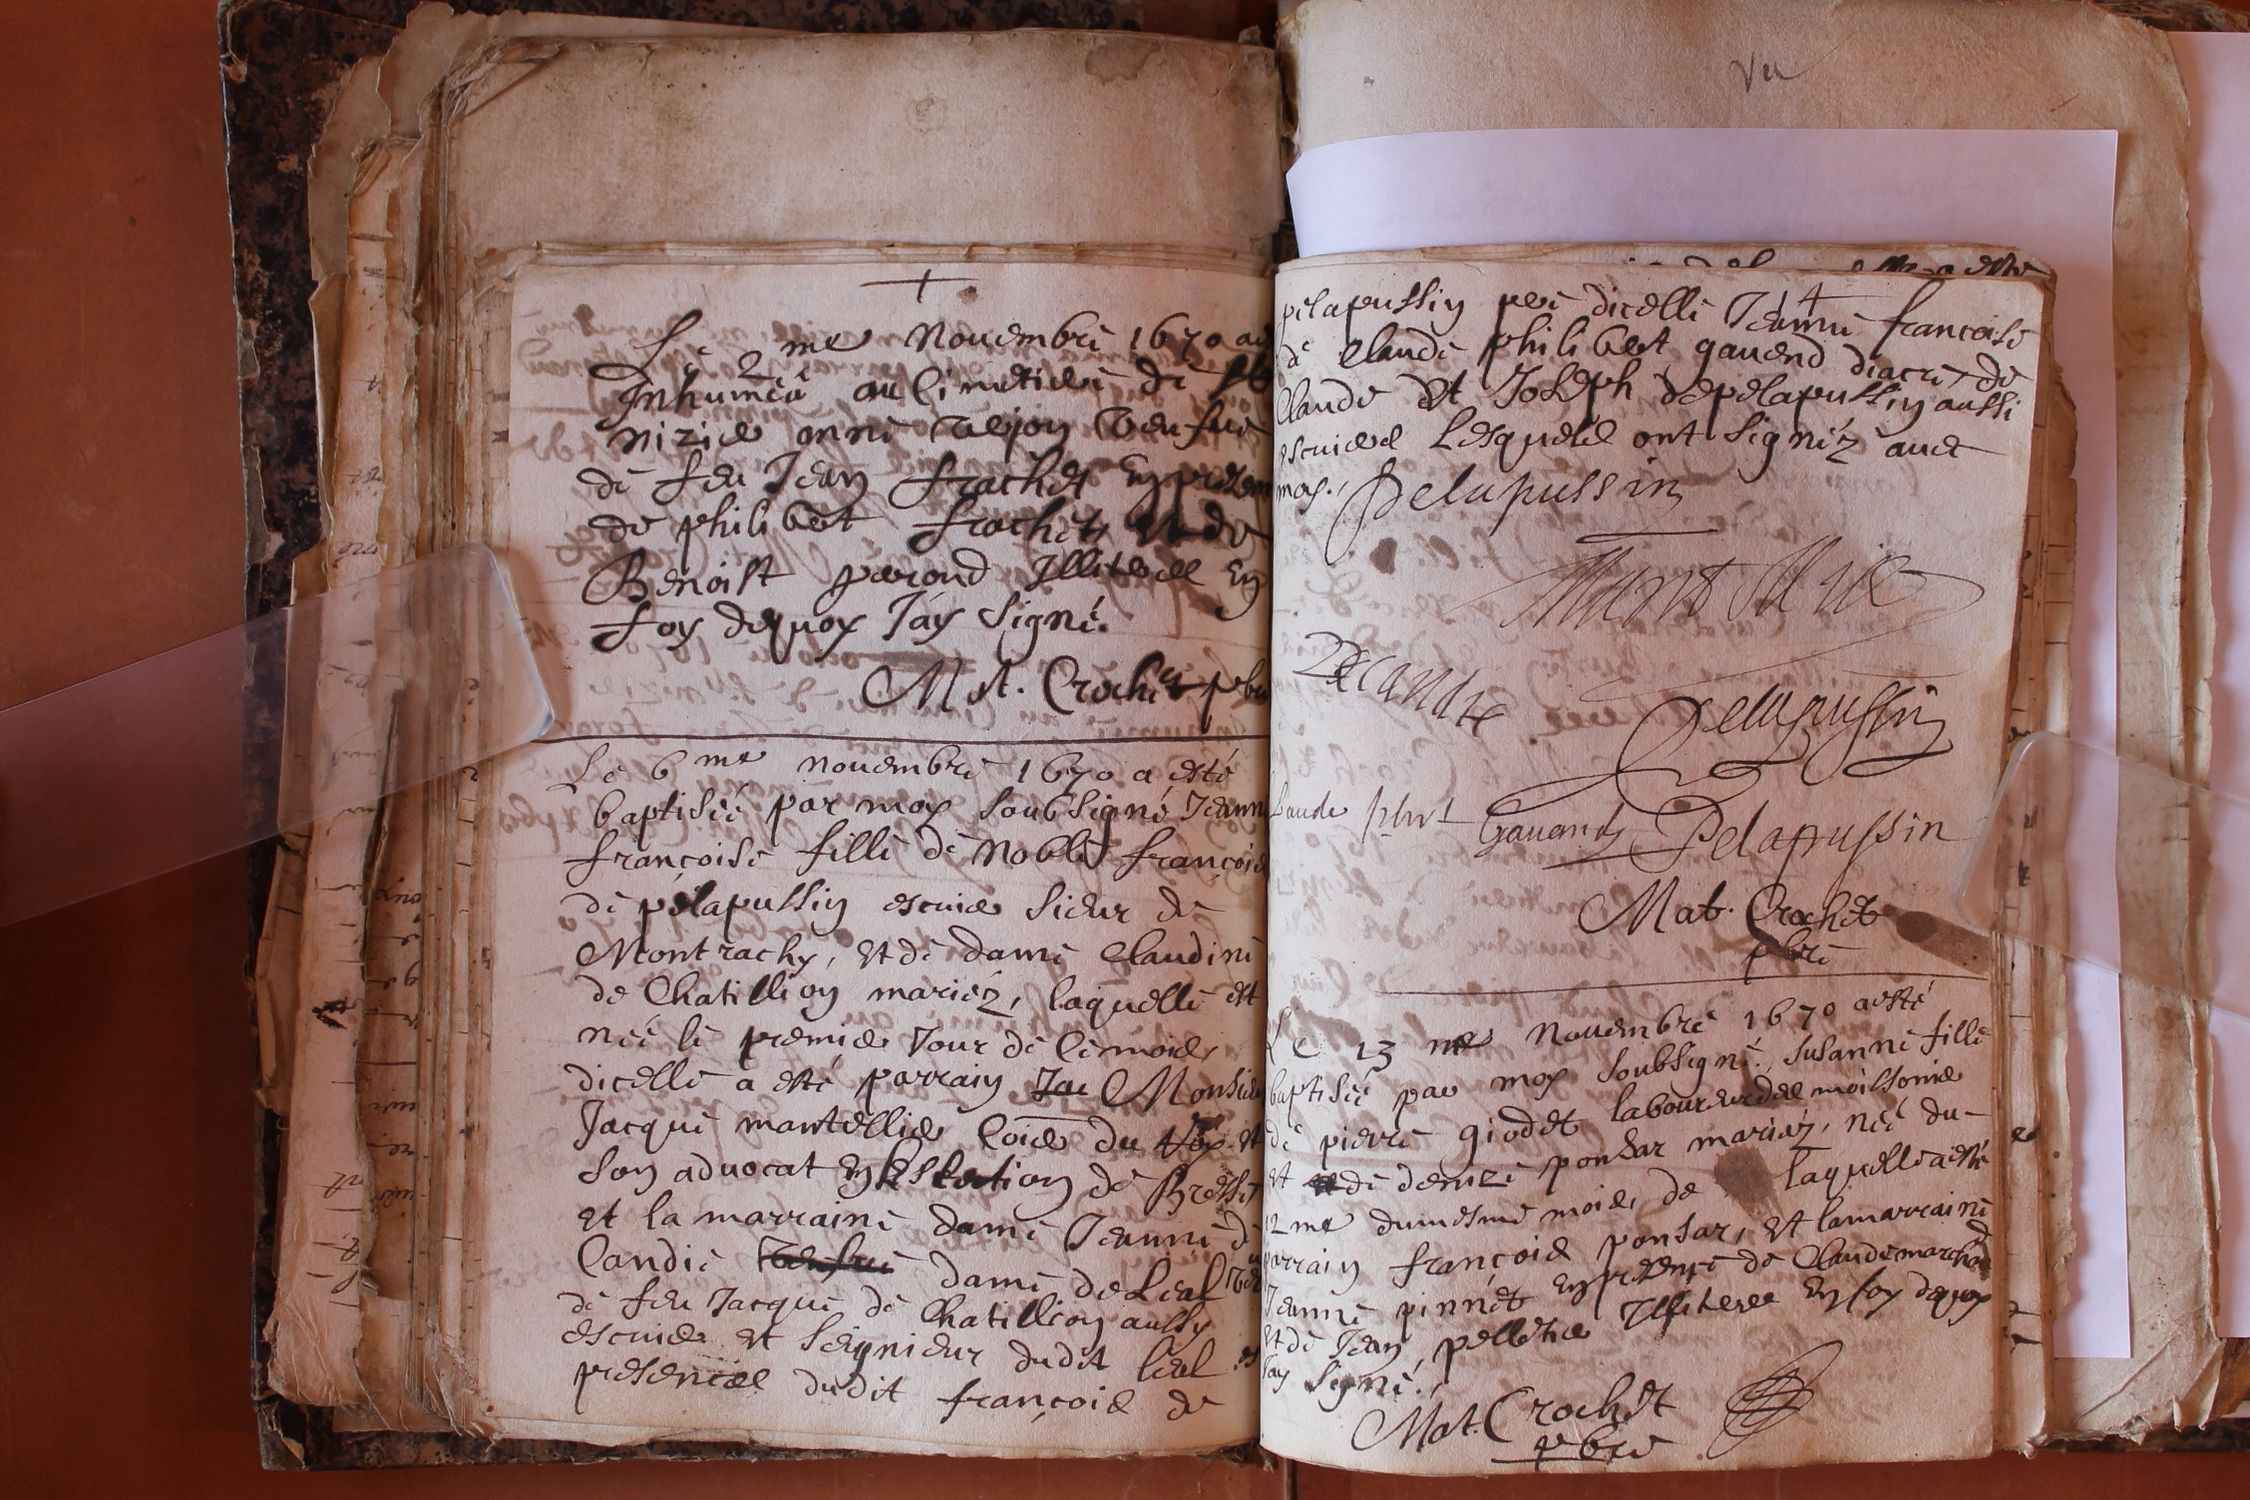 +
Le 2 me Novembre 1670 a
Inhumée au Cimetiere de St
nizier
de feu Jean frachet En presen
de philibert frachet et de
Benoist perond Illiteres En
foy dequoy J'ay signé.
Mat. Crochet pbr
Le 6 me novembre 1670 a esté
baptisée par moy soubsigné Jeanne
françoise fille de Noble françois
de pelapussin escuier sieur de
Montrachy, et de dame Claudine
de Chatillion mariéz, laquelle est
née le premier Jour de Ce mois,
dicelle a esté parrain Monsieur
Jacque mantellier Coner du Roy et
son advocat en Eslection de Bresse
et la marraine dame Jeanne de
Candie dame de Leal
de feu Jacque de Chatillion aussy
escuier et seignieur dudit leal
presences dudit françois de
Vu
4
pelapussin pere dicelle Jeanne françoise
de Claude philibert gavend diacre, de
Claude et Joseph depelapussin aussi
escuiers Lesquels ont signéz avec
moy. Pelapussin
Decandie
Pelapussin
Claude phrt Gavand Pelapussin
Mat. Crochet
pbre
Le 13 me Novembre 1670 a esté
baptisée par moy soubsigné, Susanne fille
de pierre giodet laboureur des moissonier
et de denize ponsar mariéz, née du
12 me du mesme mois, de laquelle a esté
parrain françois ponsar, et la marraine
Jeanne pinnet En presence de Claude marchand
et de Jean pelletier Illiteres En foy dequoy
J'ay signé.
Mat. Crochet
pbre